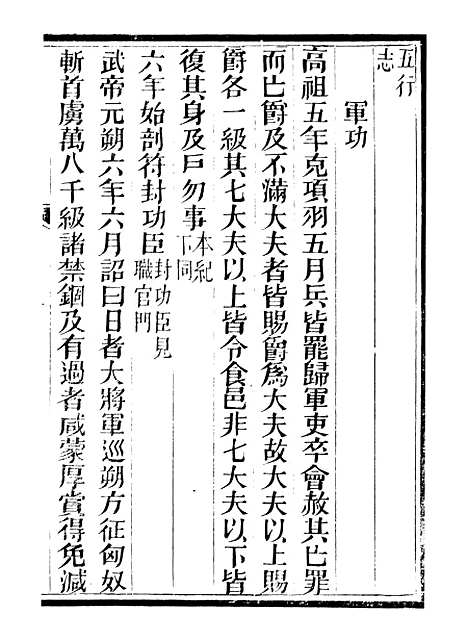 五行
志
軍功
高祖五年克項羽五月兵皆罷歸軍吏卒會赦其亡罪
而亡爵及不滿大夫者皆賜爵爲大夫故大夫以上賜
爵各一級其七大夫以上皆令食邑非七大夫以下皆
復其身及戶勿事本紀下同
六年始剖符封功臣封功臣見職官門
武帝元朔六年六月詔曰日者大將軍巡朔方征匈奴
斬首虜萬八千級諸禁錮及有過者咸蒙厚賞得免減